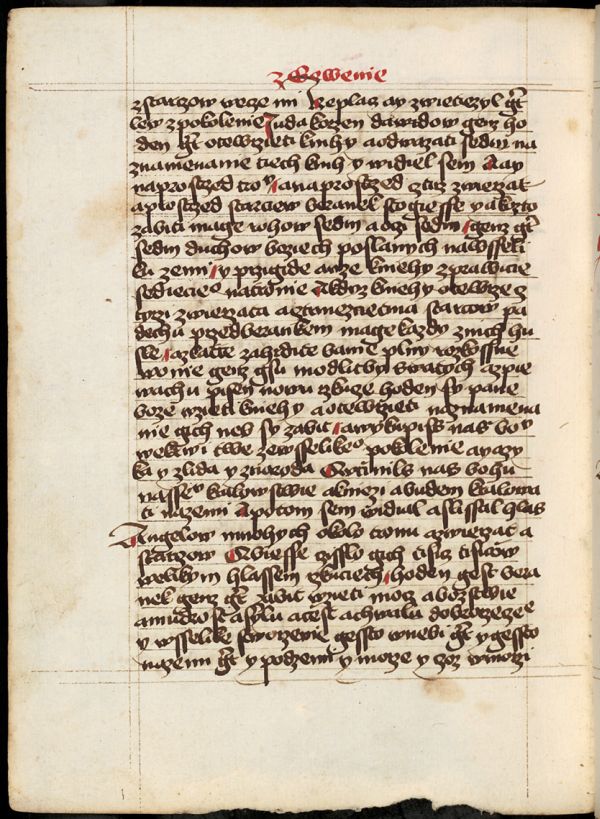 zGewenie
zstarzow wece mi Neplaz ay zwietiezyl gt
lew zpokolenie Juda korzen dawidow genz ho
den gt otewrzieti knihy aodwazati sedm na
znamenanie tiech knih y widiel sem Aay
naprostrzed tro ianaprostrzed ztirz zwierzat
aprostrzed starcow beranek stogiesse yakzto
zabiti magie rohow sedm aoczi sedm genz gt
sedm duchow boziech poslanych nawsseli
ku zemi y przigide awze kniehy zprawicie
sediecie natronie Akdiz kniehy otewrze z
tyrzi zwierzata aczrmezcietma starcow pa
dechu przedberankem magie kazdy znich hu
sle azlatte zahrdlice banie plny rozkossne
wonie genz gsu modlitby swatych azpie
wachu piesen nowu rzkuce hoden sy pane
boze wzieti kniehy aotewrzieti naznamena
nie gich neb sy zabit awykupils nas bo
wekrwi twe zewsselike pokolenie ayazy
ka y zlida y znaroda Qvczinils nas bohu
nasse kralowstwie akniezi abudem kralowa
ti nazemi Apotom sem widiel aslissal hlas
Angelow mnohych okolo tronu azwierzat a
starzow Abiesse czisslo gich tisic tisicow
welikym hlassem rzkuciech hoden gest bera
nek genz gt zabit wzieti moc abozstwie
amudrost asylu acest achwalu dobrorzecze
y wsselike stworzenie gessto wnebi gt y gessto
nazemi gt y podzemi y morze y czoz wmorzi